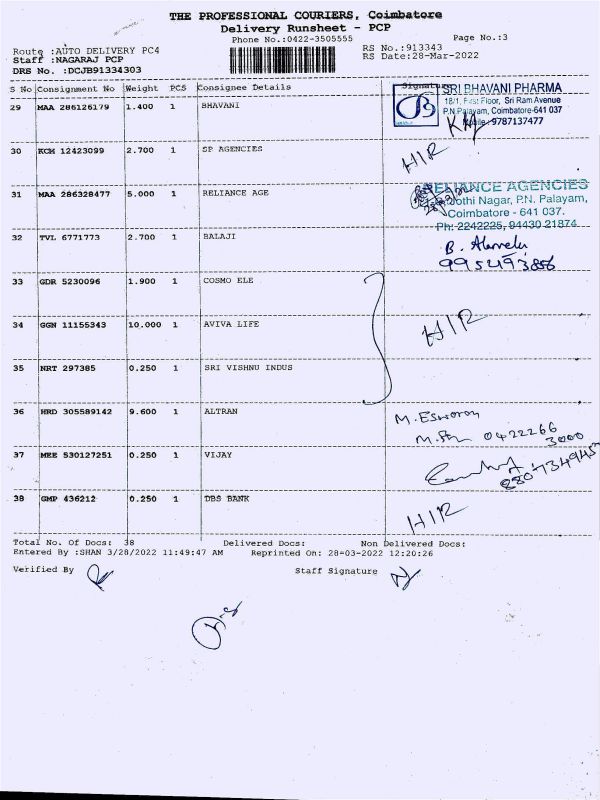 THE PROFESSIONAL COURIERS, Coimbatore
Delivery Runsheet - PCP
Phone No.:0422-3505555 Page No.:3
Route :AUTO DELIVERY PC4 RS No.:913343
Staff :NAGARAJ PCP RS Date:28-Mar-2022
DRS No. :DCJB91334303
S No Consignment No Weight PCS Consignee Details Signature
29 MAA 286126179 1.400 1 BHAVANI
SRI BHAVANI PHARMA
18/1, First Floor, Sri Ram Avenue
P.N.Palayam, Coimbatore-641 037
Mobile :9787137477
30 KCM 12423099 2.700 1 SP AGENCIES HIR
31 MAA 286328477 5.000 1 RELIANCE AGE
RELIANCE AGENCIES
Jothi Nagar, P.N. Palayam,
Coimbatore - 641 037.
Ph: 2242225, 94430 21874
32 TVL 6771773 2.700 1 BALAJI B. Alamelu
33 GDR 5230096 1.900 1 COSMO ELE
34 GGN 11155343 10.000 1 AVIVA LIFE HIR
35 NRT 297385 0.250 1 SRI VISHNU INDUS
36 HRD 305589142 9.600 1 ALTRAN M. Esworon
0422266
3000
37 MEE 530127251 0.250 1 VIJAY
38 GMP 436212 0.250 1 DBS BANK HIR
Total No. Of Docs: 38 Delivered Docs: Non Delivered Docs:
Entered By :SHAN 3/28/2022 11:49:47 AM Reprinted On: 28-03-2022 12:20:26
Verified By Staff Signature